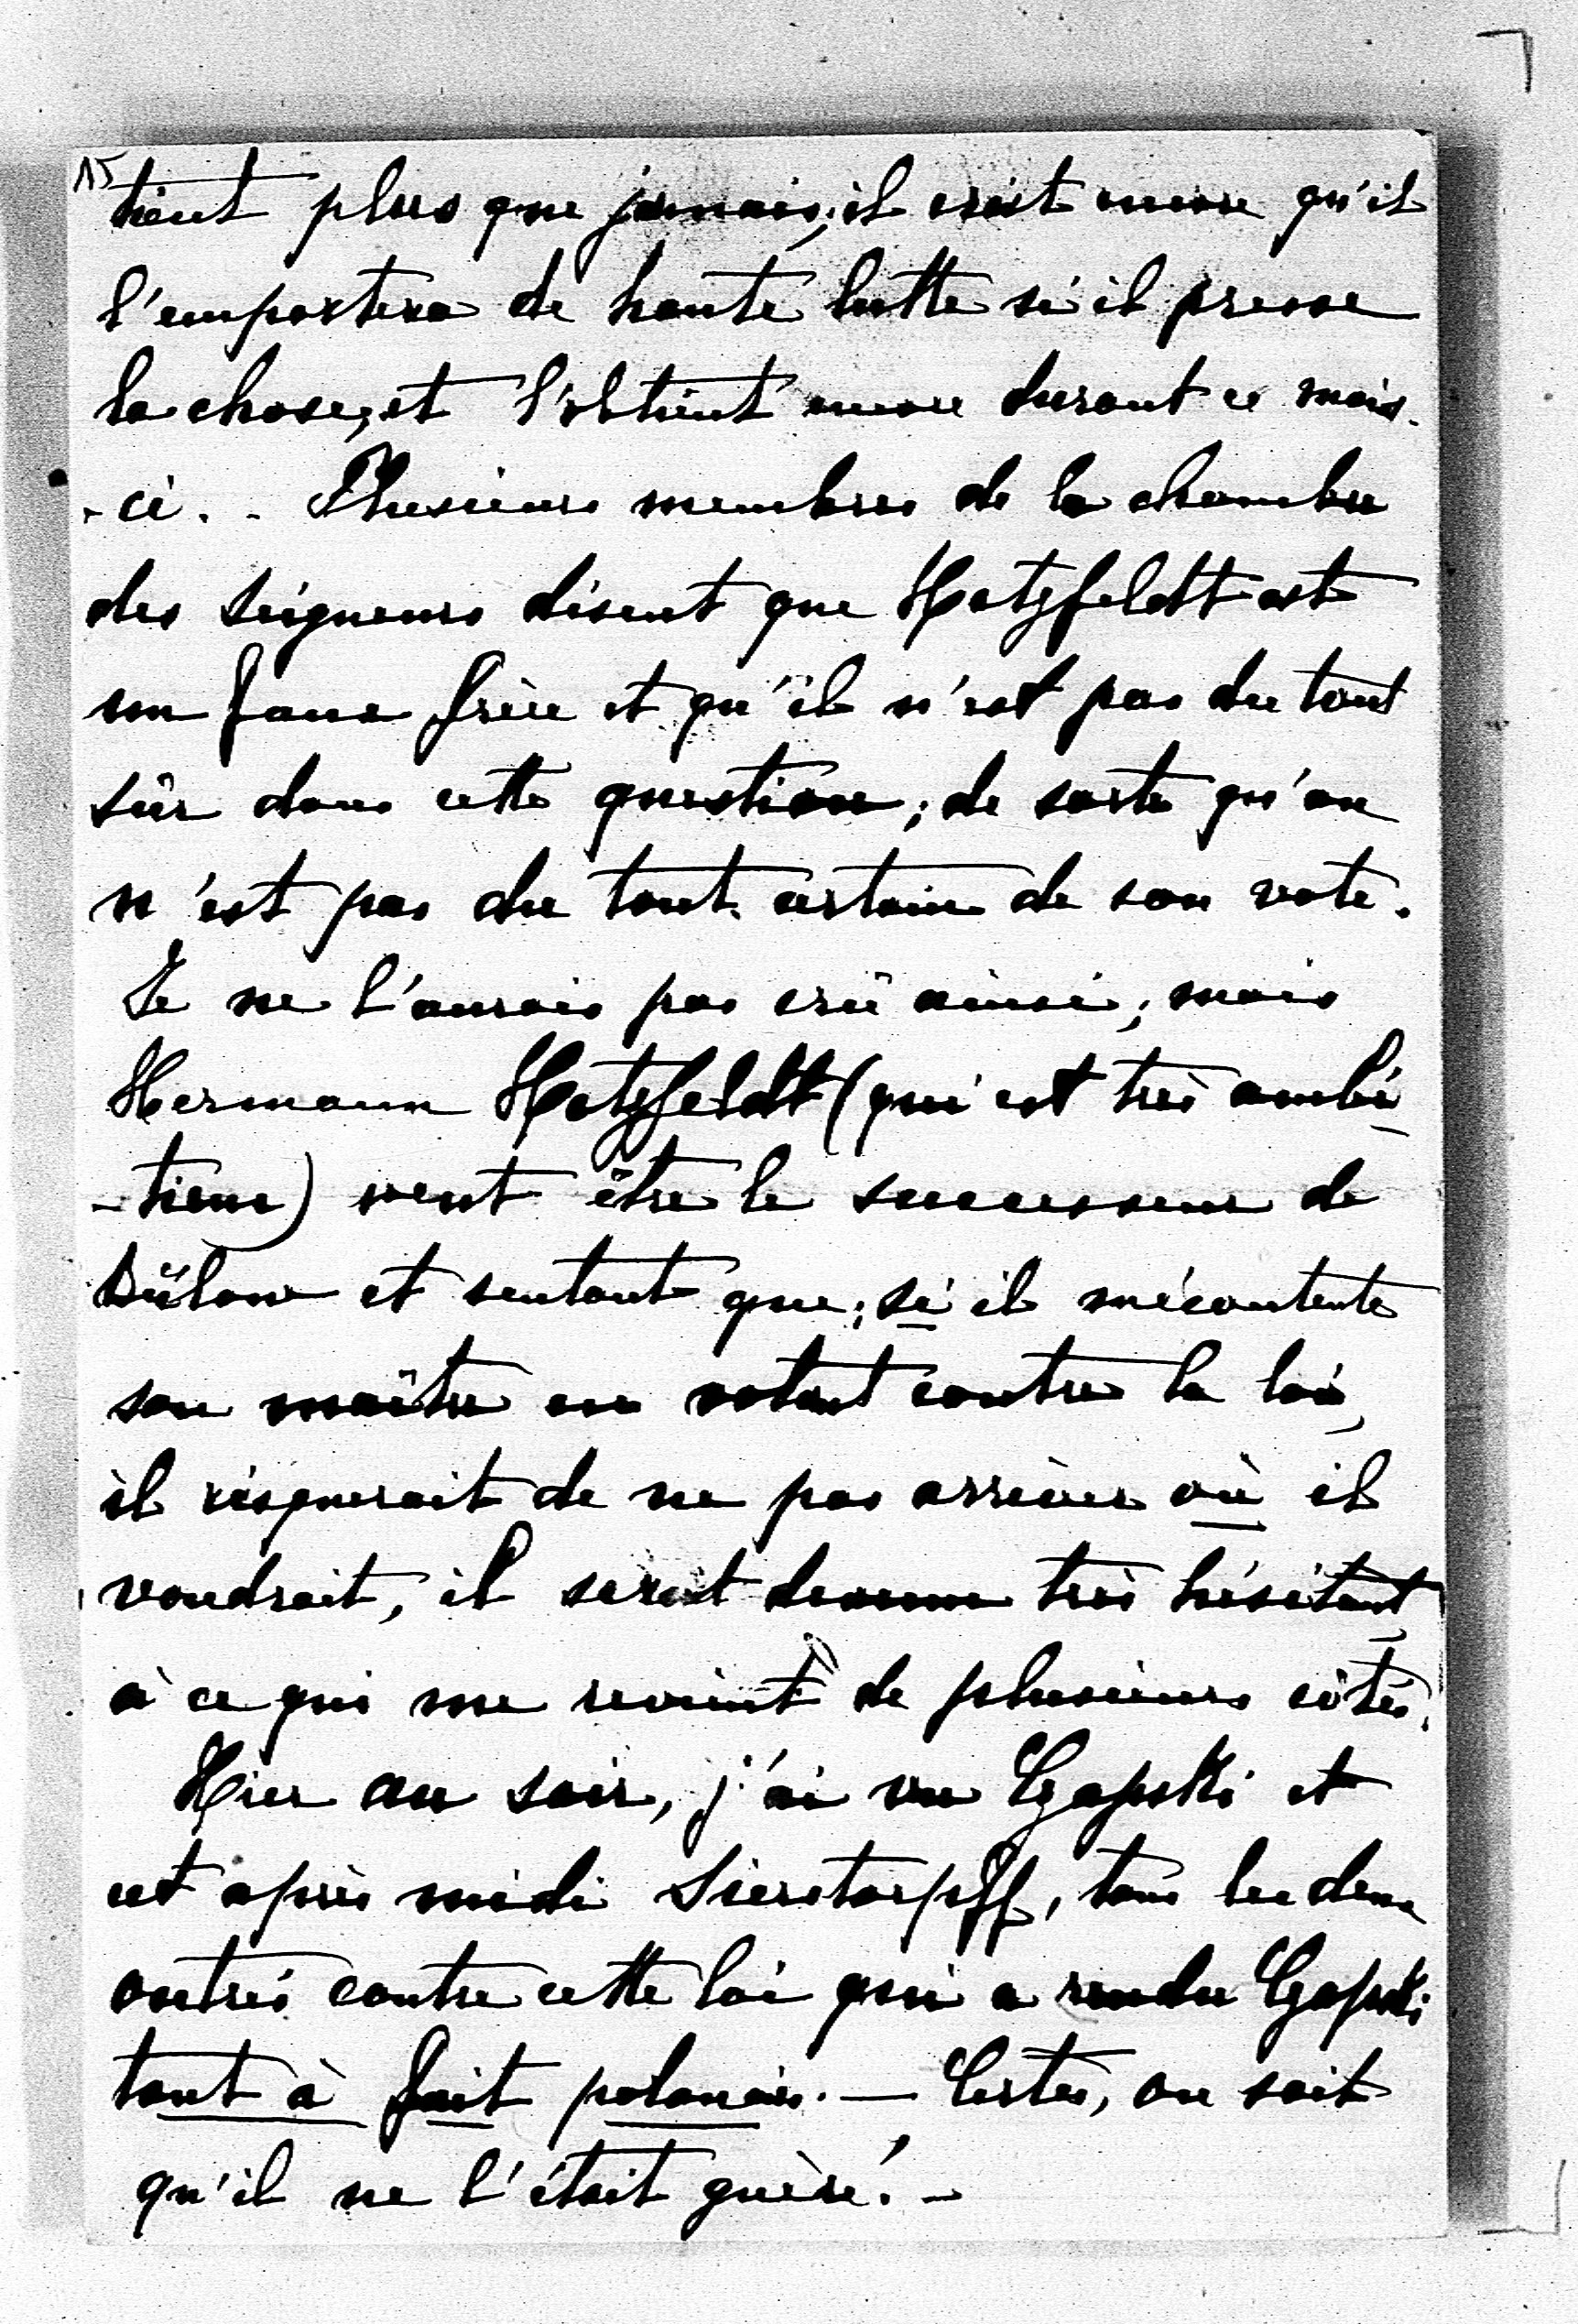 15
tient plus que jamais; il croit encore qu'il
l'emportera de haute lutte si il presse
la chose, et l'obtient encore durant ce mois-
-ci. . Plusieurs membres de la chambre
des Seigneurs disent que Hatzfeldt est
un faux frère et qu'il n'est pas du tout
sûr dans cette question; de sorte qu'on
n'est pas du tout certain de son vote.
Je ne l'aurais pas crû ainsi; mais
Hermann Hatzfeldt (qui est très ambi-
-tieux) veut être le successeur de
Bülow et sentant que, si il mécontente
son maître en votant contre la loi,
il risquerait de ne pas arriver où il
voudrait, il serait devenu très hésitant
à ce qui me revient de plusieurs côtés.
Hier au soir, j'ai vu Czapski et
cet après midi Sierstorpff, tous les deux
outrés contre cette loi qui a rendu Czapski
tout à fait polonais. — Certes, on sait
qu'il ne l'était guère! –